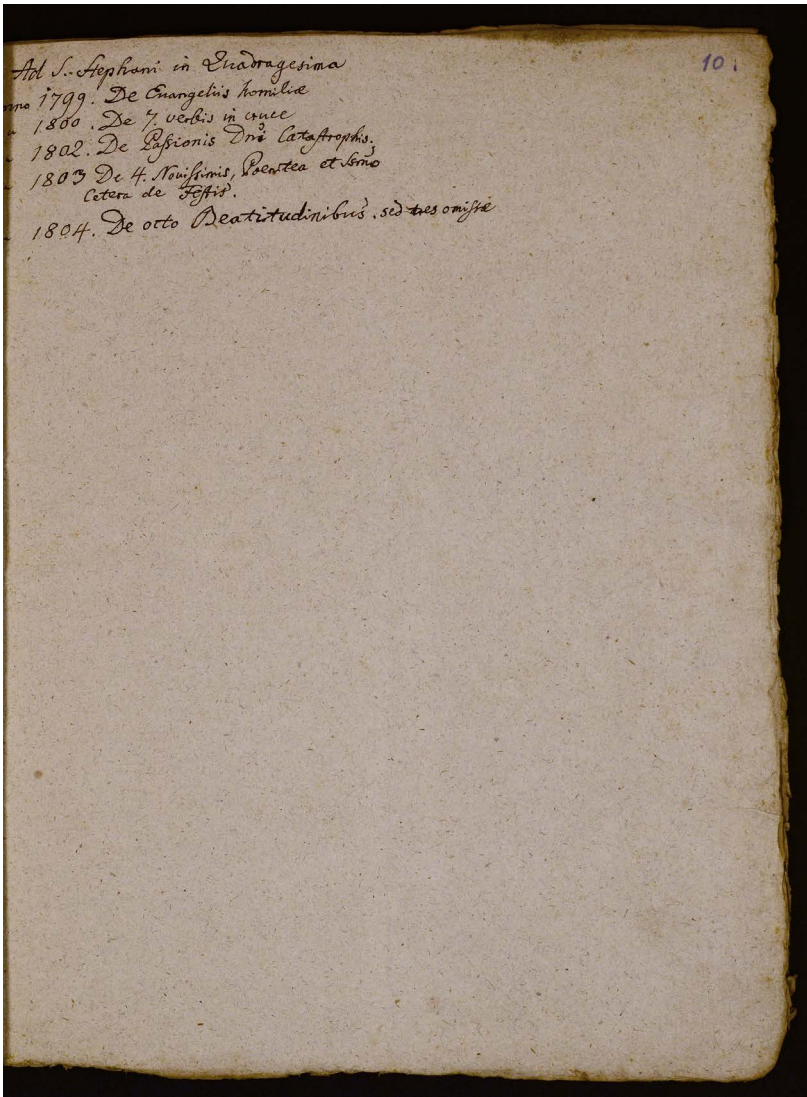 10.
Ad S. Stephani in Quadragesima
anno 1799. De Evangeliis homiliæ
" 1800. De 7. verbis in cruce
" 1802. De Passionis Dnī Catastrophis.
" 1803 De 4. Novissimis, Poenitea et
Cetera de Festis.
" 1804. De octo Beatitudinibus. sed tres omissæ